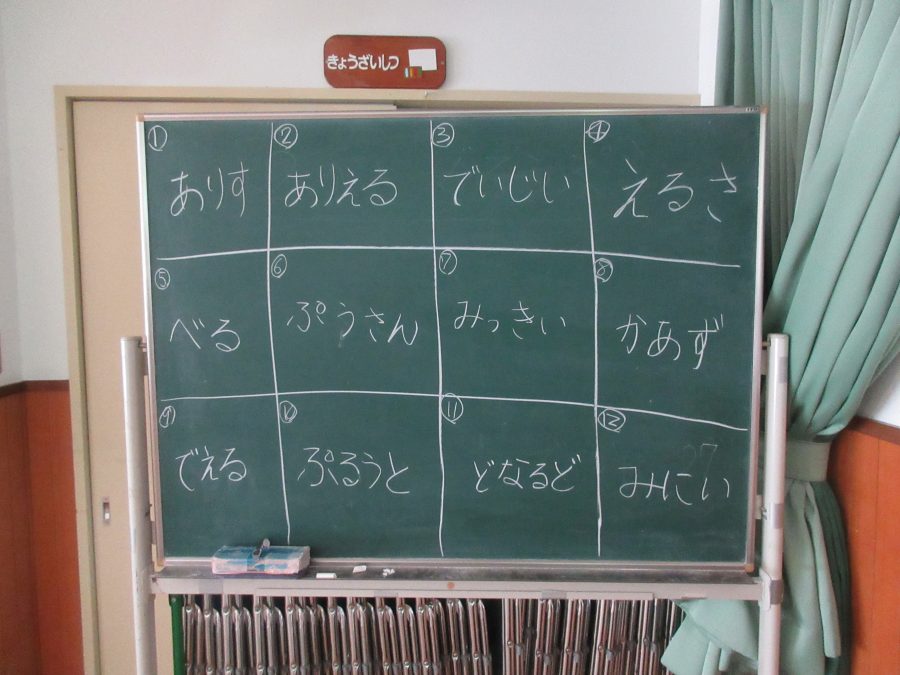 きょうざいしつ
① ② ③ ④
ありす ありえる でいじい えるさ
⑤ ⑥ ⑦ ⑧
べる ぷうさん みっきい かあず
⑨ ⑩ ⑪ ⑫
でえる ぷるうと どなるど みにい